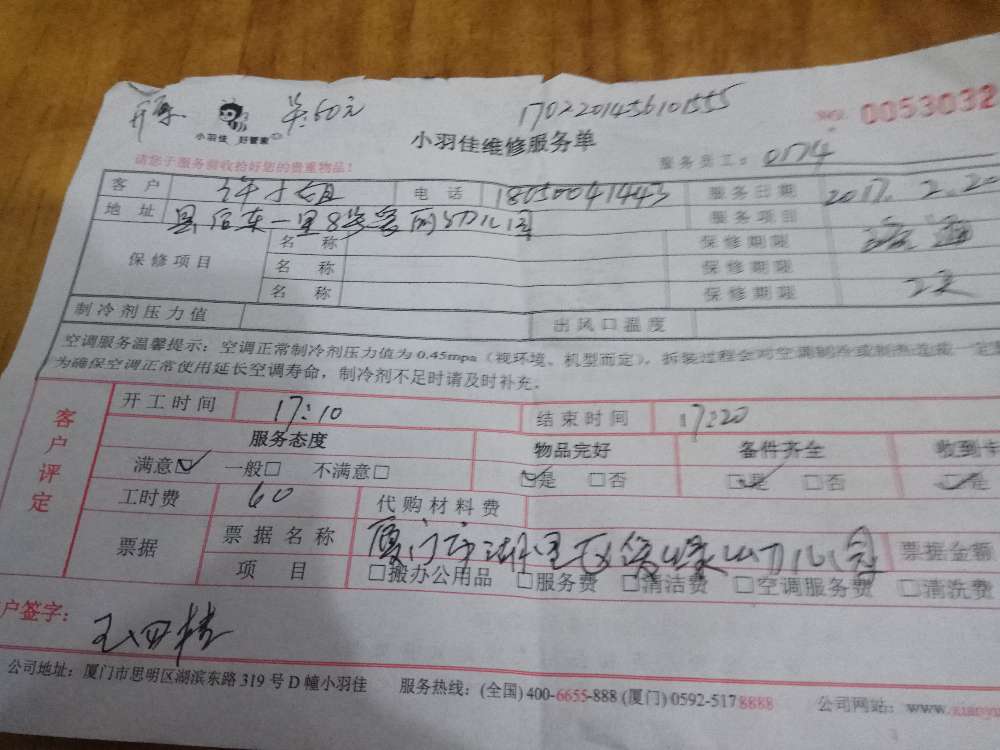 共:60元 1702201456101555
小羽佳 好管家 小羽佳维修服务单 NO. 0053032
请您于服务前收拾好您的贵重物品! 服务员工: 0174
客户 许小姐 电话 18050041443 服务日期 2017.2.20
地址 县后东一里8号 幼儿园 服务项目
保修项目 名称 保修期限
名称 保修期限
名称 保修期限
制冷剂压力值 出风口温度
空调服务温馨提示:空调正常制冷剂压力值为0.45mpa(视环境、机型而定),拆装过程会对空调制冷或制热造成一定
为确保空调正常使用延长空调寿命,制冷剂不足时请及时补充。
客户评定
开工时间 17:10 结束时间 17:20
服务态度 物品完好 备件齐全 收到卡
满意☑ 一般□ 不满意□ ☑是 □否 ☑是 □否 ☑是
工时费 60 代购材料费
票据 票据名称 厦门市湖里区 幼儿园 票据金额
项目 □搬办公用品 □服务费 □清洁费 □空调服务费 □清洗费
户签字:
公司地址:厦门市思明区湖滨东路319号D幢小羽佳 服务热线:(全国)400-6655-888 (厦门)0592-5178888 公司网站:www.xiaoyu